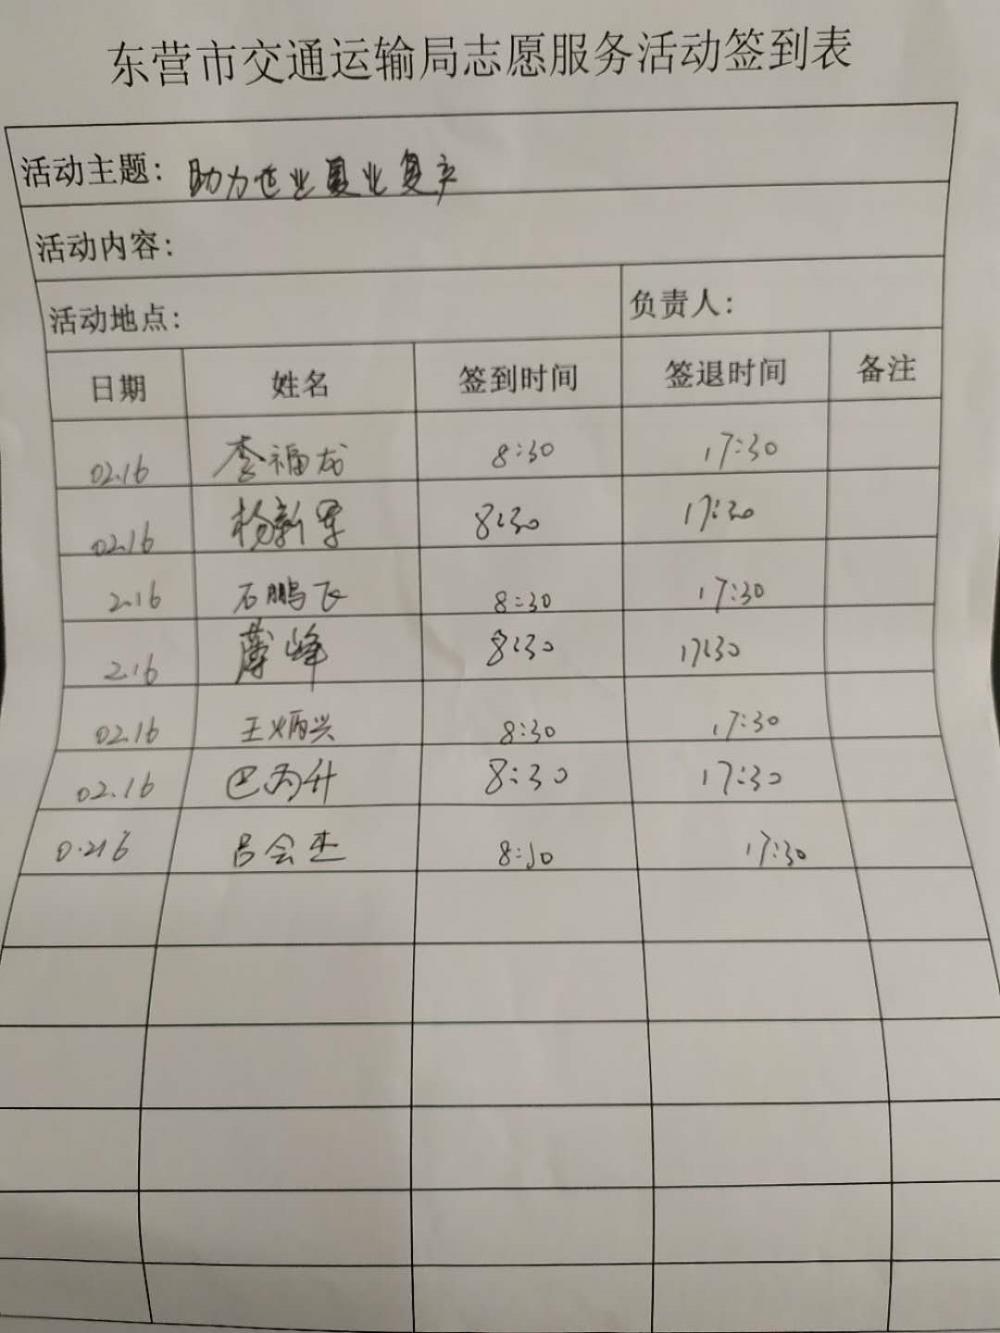 东营市交通运输局志愿服务活动签到表
活动主题：助力企业复业复产
活动内容：
活动地点： 负责人：
日期 姓名 签到时间 签退时间 备注
02.16 李福龙 8:30 17:30
02.16 杨新军 8:30 17:30
2.16 石鹏飞 8:30 17:30
2.16 薄峰 8:30 17:30
02.16 王炳兴 8:30 17:30
02.16 巴丙升 8:30 17:30
0.216 吕会杰 8:30 17:30